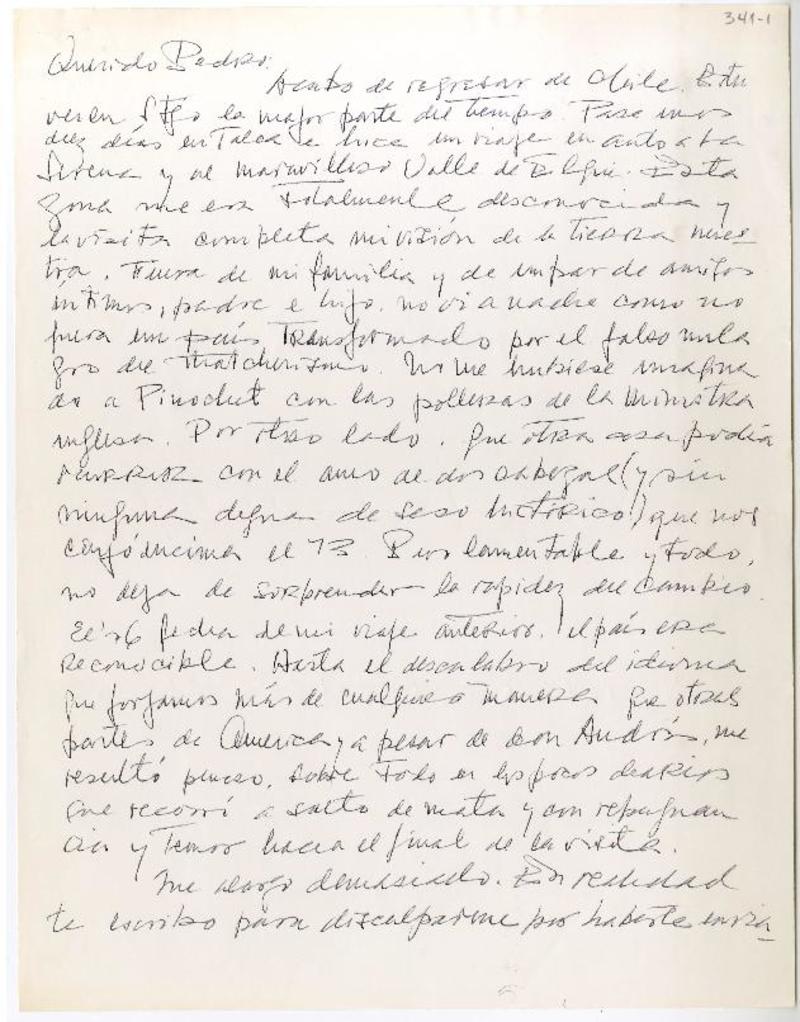 341-1
Querido Pedro:
Acabo de regresar de Chile. Estu
ve en Stgo la mayor parte del tiempo. Pasé unos
diez días en Talca e hice un viaje en auto a La
Serena y al maravilloso Valle de Elqui. Esta
zona me era totalmente desconocida y
la visita completa mi visión de la tierra nues-
tra. Fuera de mi familia y de un par de amigos
íntimos, padre e hijo, no vi a nadie como no
fuera un país transformado por el falso mila
gro del thatcherismo. No me hubiese imagina
do a Pinochet con las polleras de la ministra
inglesa. Por otro lado, que otra cosa podía
ocurrir con el amo de dos cabezal (y sin
ninguna de seso histórico!) que nos
cayó encima el 73. Pero lamentable y todo,
no deja de sorprender la rapidez del cambio.
El '86 fecha de mi viaje anterior, el país era
reconocible. Hasta el descalabro del idioma
que forjamos más de cualquier manera que otras
partes de América y a pesar de don Andrés, me
resultó penoso, sobre todo en los pocos diarios
que recorrí a salto de mata y con repugnan
cia y temor hacia el final de la visita.
Me alargo demasiado. En realidad
te escribo para disculparme por haberte envia-